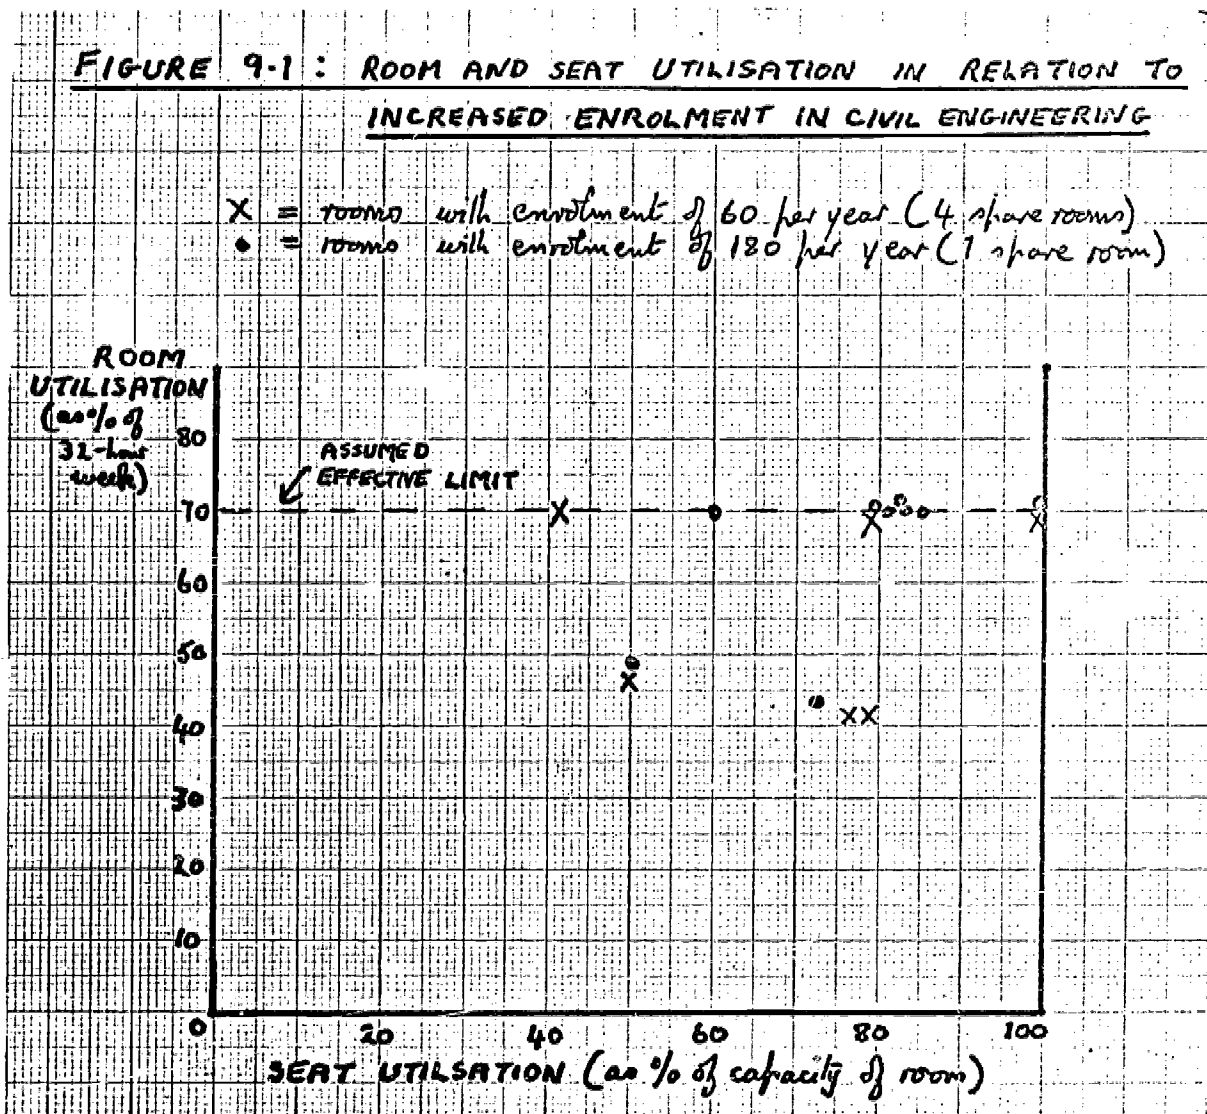 FIGURE 9.1: ROOM AND SEAT UTILISATION IN RELATION TO
INCREASED ENROLMENT IN CIVIL ENGINEERING
X = rooms with enrolment of 60 per year (4 spare rooms)
• = rooms with enrolment of 180 per year (1 spare room)
ROOM
UTILISATION
(as % of
32-hour
week)
80
ASSUMED
EFFECTIVE LIMIT
70
60
50
40
30
20
10
0 20 40 60 80 100
SEAT UTILSATION (as % of capacity of room)